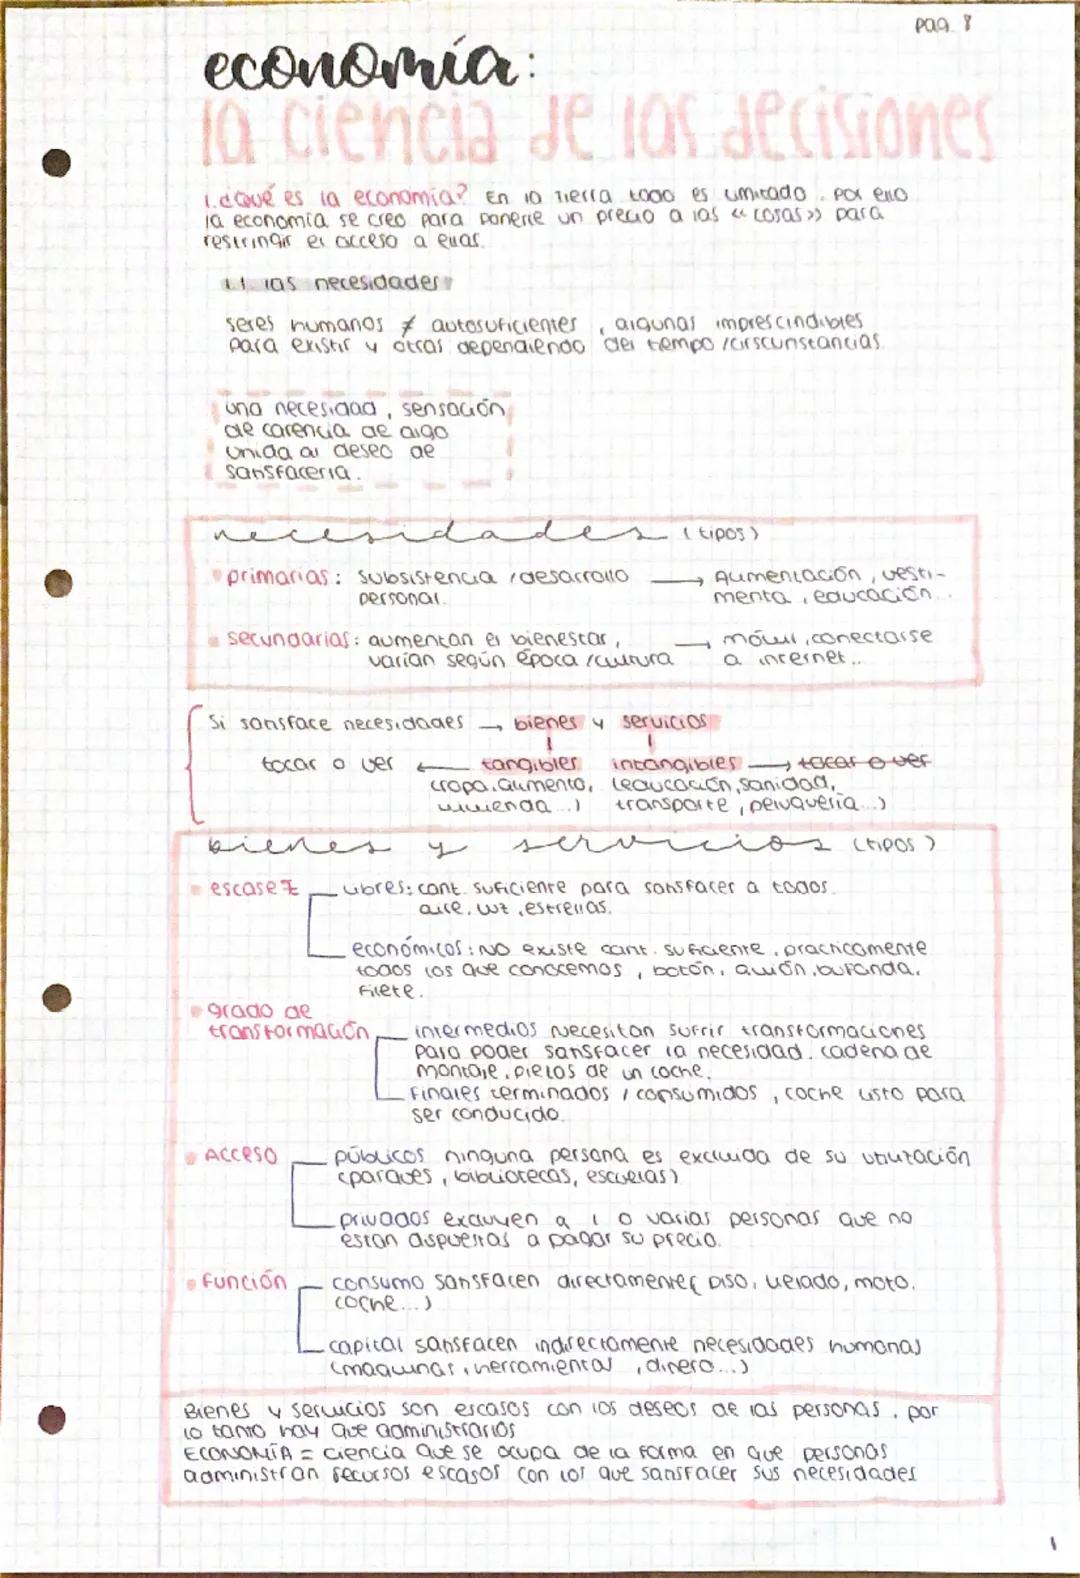 pag. 8
economía:
la ciencia de las decisiones
1. ¿Qué es la economía? En la Tierra todo es limitado. Por ello
la economía se creo para ponerle un precio a las «cosas» para
restringir el acceso a ellas.
1.1. las necesidades
seres humanos ≠ autosuficientes, algunas imprescindibles
para existir y otras dependiendo del tiempo/cirscunstancias.
una necesidad, sensación
de carencia de algo
unida al deseo de
satisfacerla.
necesidades (tipos)
primarias: subsistencia / desarrollo → Alimentación, vesti-
personal. menta, educación...
secundarias: aumentan el bienestar, → móvil, conectarse
varían según época / cultura a internet...
Si satisface necesidades → bienes y servicios
tocar o ver ← tangibles intangibles → tocar o ver
(ropa, alimento, (educación, sanidad,
vivienda...) transporte, peluquería...)
bienes y servicios (tipos)
escasez libres: cant. suficiente para satisfacer a todos.
aire, luz, estrellas.
económicos: No existe cant. suficiente, practicamente
todos los que conocemos, botón, avión, bufanda,
filete.
grado de
transformación intermedios Necesitan sufrir transformaciones
para poder satisfacer la necesidad. cadena de
montaje, piezas de un coche.
Finales terminados / consumidos, coche listo para
ser conducido.
Acceso públicos ninguna persona es excluida de su utilización
(parques, bibliotecas, escuelas)
privados excluyen a 1 o varias personas que no
estan dispuestas a pagar su precio.
Función consumo satisfacen directamente( piso, helado, moto,
coche...)
capital satisfacen indirectamente necesidades humanas
(maquinas, herramientas, dinero...)
Bienes y servicios son escasos con los deseos de las personas, por
lo tanto hay que administrarlos
ECONOMÍA = ciencia que se ocupa de la forma en que personas
administran recursos escasos con los que satisfacer sus necesidades
1